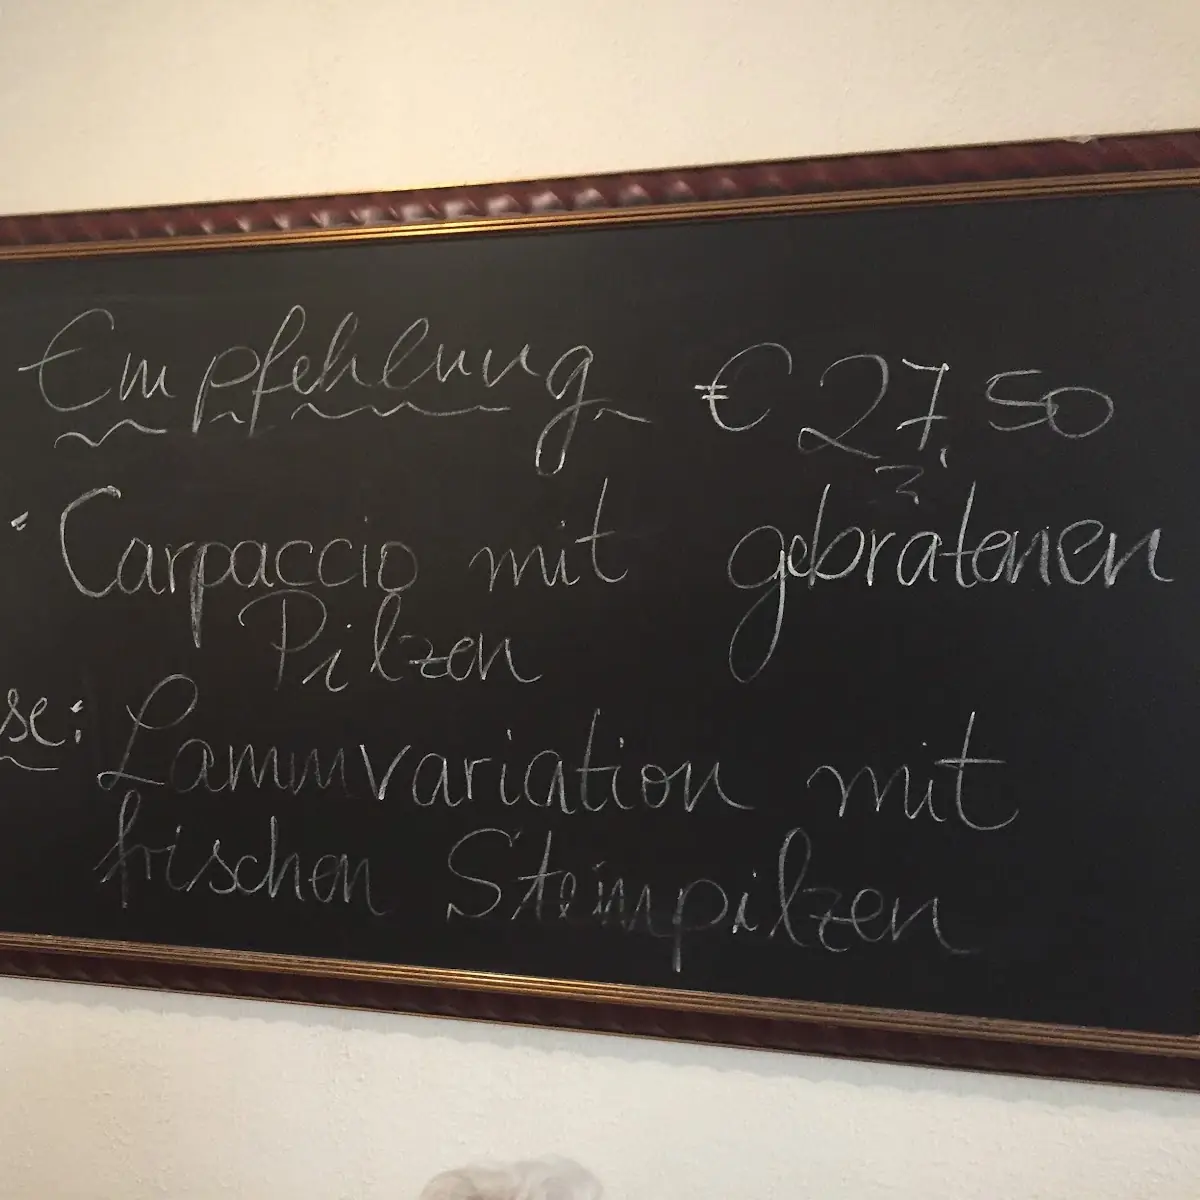 Empfehlung € 27,50
Carpaccio mit gebratenen
Pilzen
se: Lammvariation mit
frischen Steinpilzen